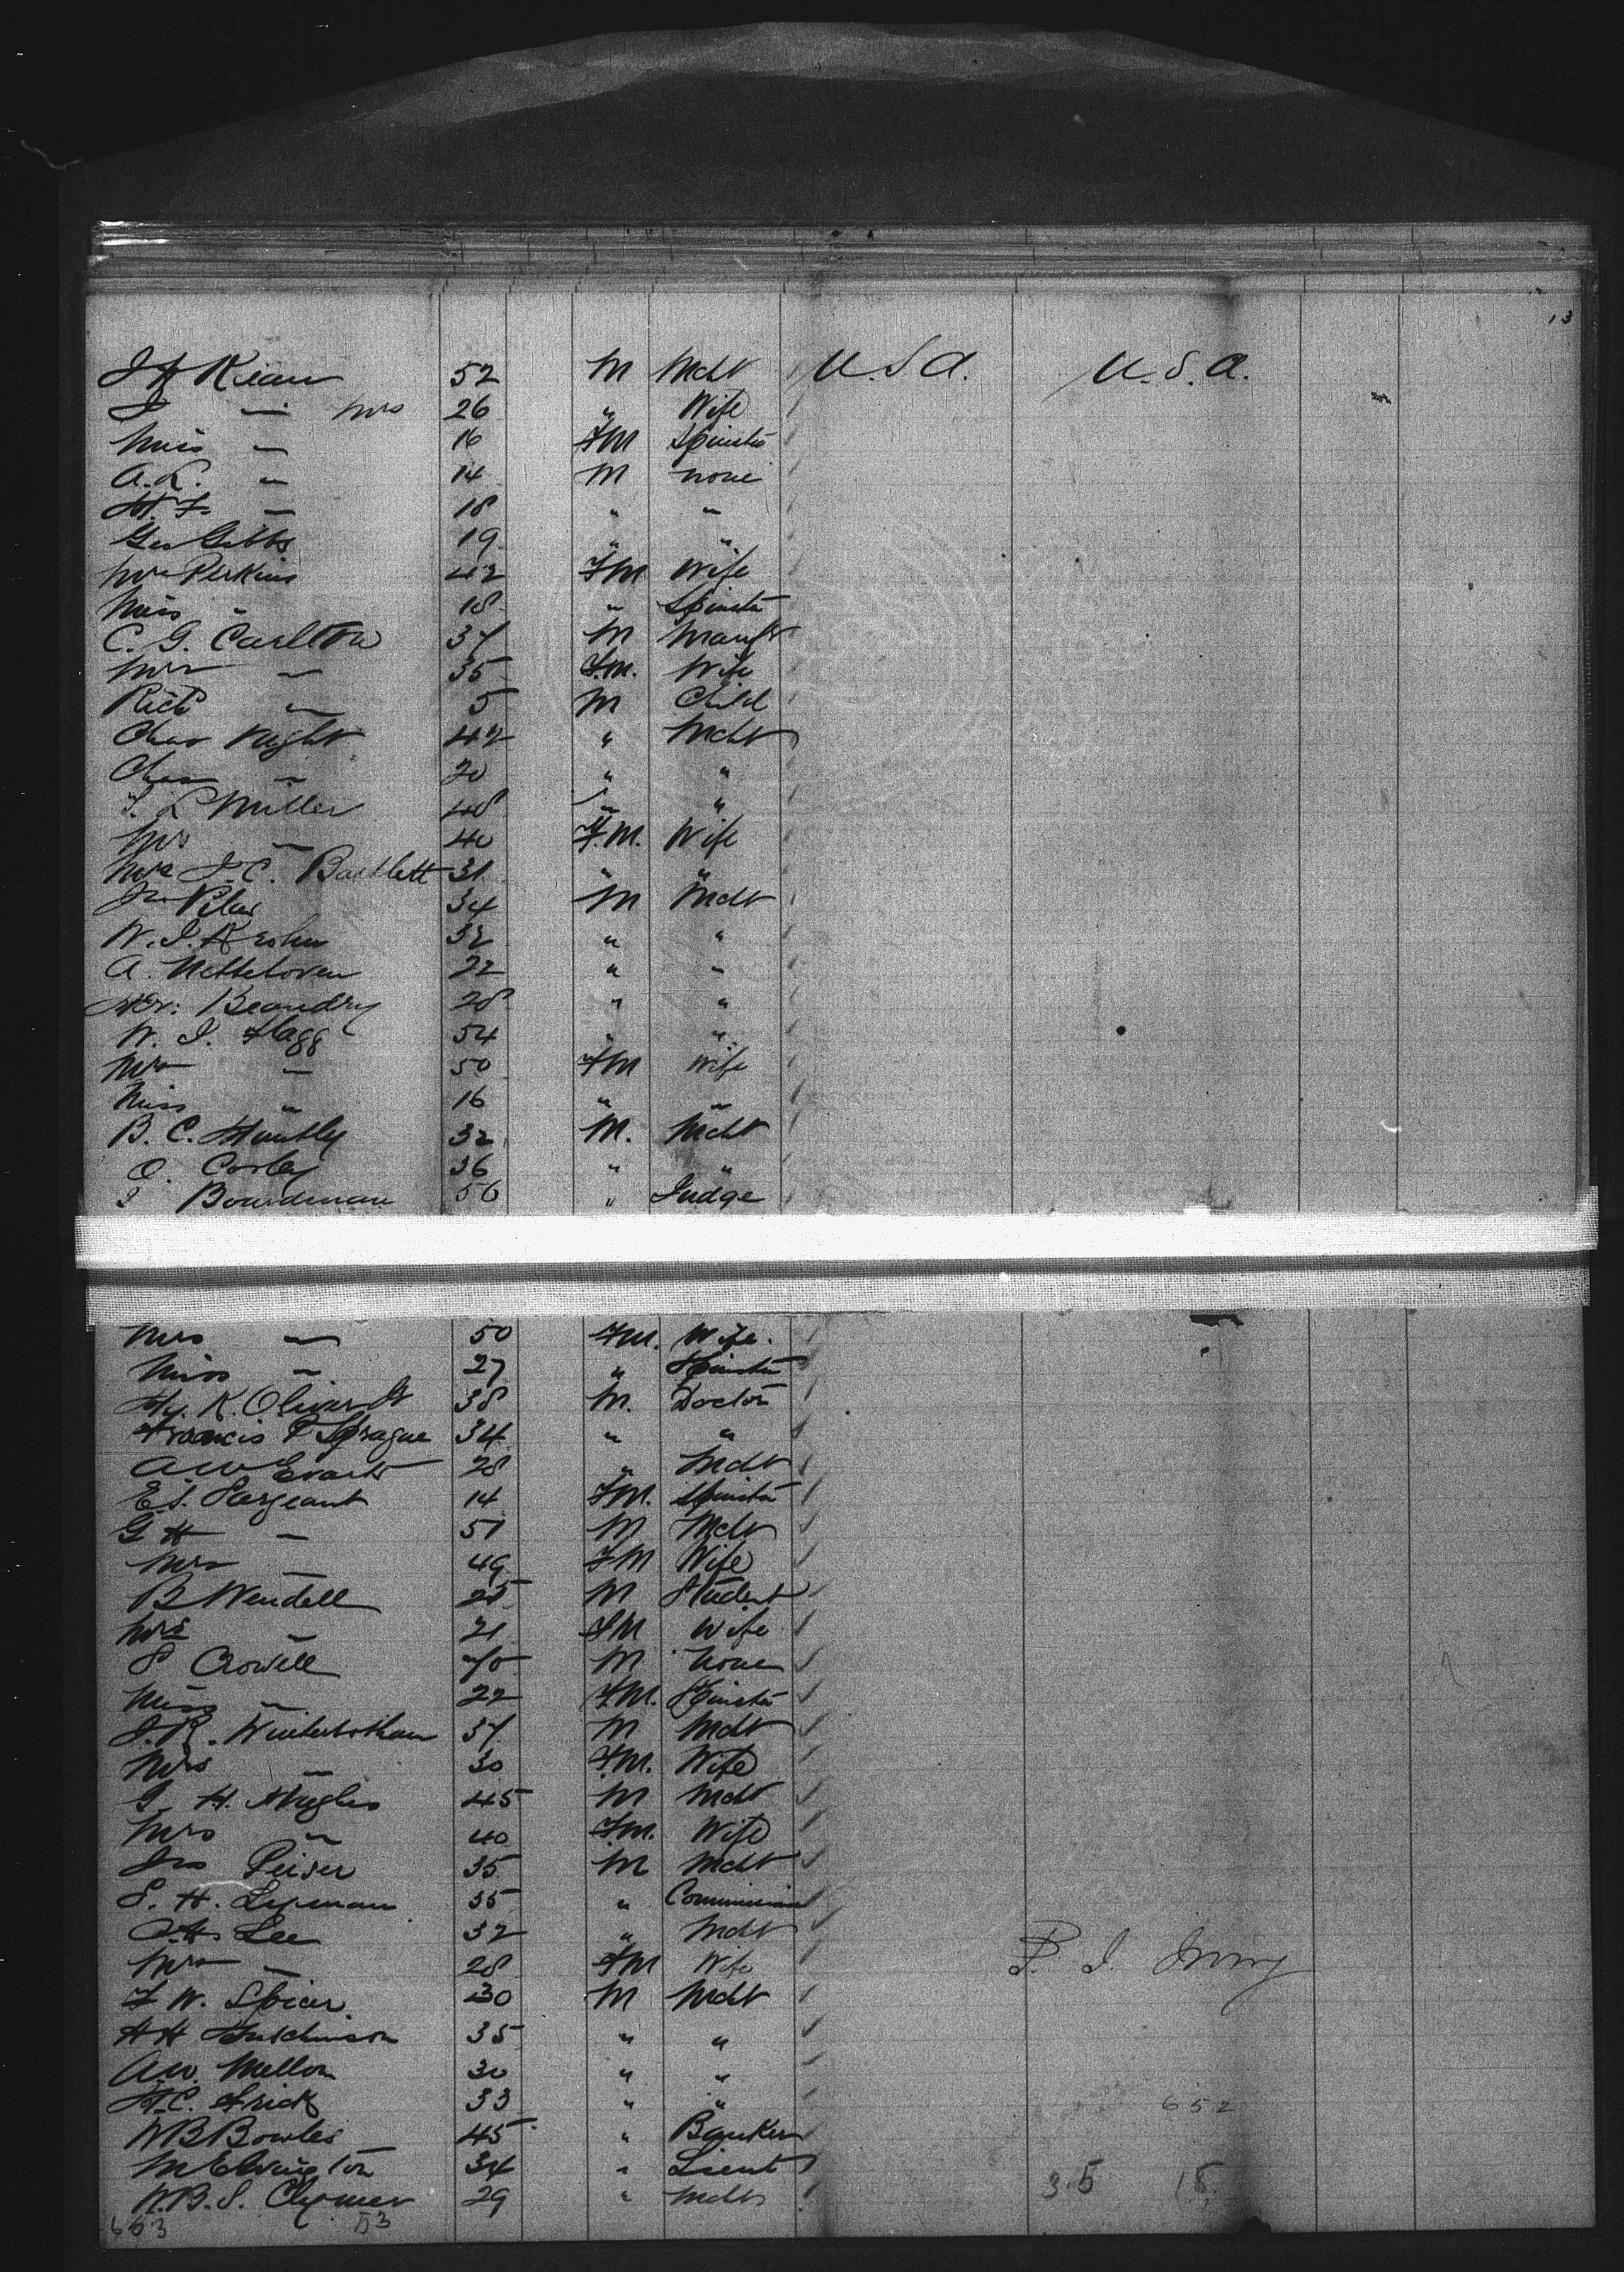 13
J R Kean 52 M Mcht U.S.A. U.S.A.
J " Mrs 26 " Wife
Miss " 16 FM Spinster
A.L. " 14 M none
H.F. " 18 " "
Geo Gibbs 19 " "
Mrs Perkins 42 FM Wife
Miss " 18 " Spinster
C. G. Carlton 37 M Manfr
Mrs " 35 F.M. Wife
Richd " 5 M Child
Chas Wright 42 " Mcht
Chas " 20 " "
F. L Miller 48 " "
Mrs " 40 F.M. Wife
Mrs J.C. Bartlett 31 " "
34 M Mcht
W. J. 32 " "
A. Nettehoven 22 " "
Beaudry 28 " "
W. J. Flagg 54 " "
Mrs " 50 FM Wife
Miss " 16 " "
B. C. Huntley 32 M. Mcht
O. Corley 36 " "
Boardman 56 " Judge
Mrs " 50 FM. Wife.
Miss " 27 " Spinster
Hy. K. Oliver Jr 38 M. Doctor
Francis P Sprague 34 " "
A W Evarts 28 " Mcht
E.S. Sargeant 14 FM. Spinster
G H " 51 M Mcht
Mrs " 49 FM Wife
B Wendell 25 M Student
Mrs " 21 FM Wife
S Crowell 70 M None
Miss " 22 FM. Spinster
J. R. Winterbotham 37 M Mcht
Mrs " 30 FM. Wife
G. H. Hughes 45 M Mcht
Mrs " 40 FM. Wife
Jas Peiser 35 M Mcht
S. H. Lipman 35 "
Lee 32 " Mcht
Mrs " 28 FM Wife
F W. Spicer 30 M Mcht
H H Hutchinson 35 " "
A.W. Mellon 30 " "
H.C. Frick 33 " "
652
W B Bowles 45 " Banker
34 " Lieut
W.B.S. Clymer 29 " Mcht
35 18
653 53